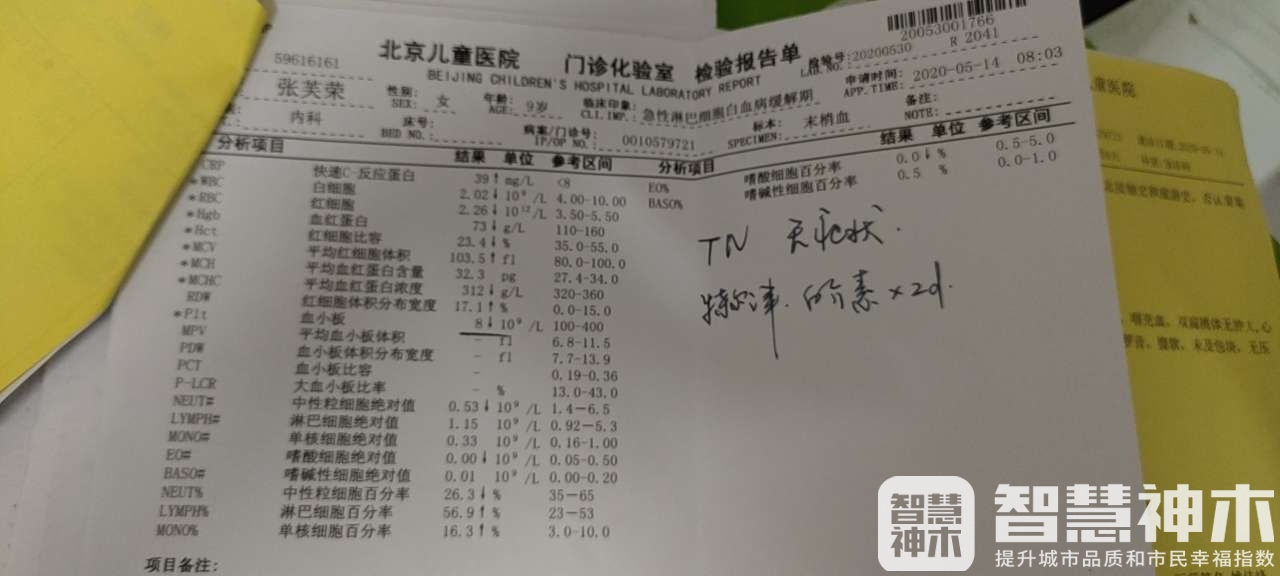 20053001766
R 2041
59616161
北京儿童医院 门诊化验室 检验报告单
BEIJING CHILDREN'S HOSPITAL LABORATORY REPORT
检验号:20200530
LAB.NO.:
申请时间: 2020-05-14 08:03
APP.TIME:
张芙荣 性别: 女 年龄: 9岁 临床印象: 急性淋巴细胞白血病缓解期
SEX: AGE: CLI.IMP.:
内科 床号: 病案/门诊号: 0010579721 标本: 末梢血 备注:
BED NO.: IP/OP NO.: SPECIMEN: NOTE:
分析项目 结果 单位 参考区间 分析项目 结果 单位 参考区间
CRP 快速C-反应蛋白 39↑ mg/L <8
*WBC 白细胞 2.02↓ 10⁹/L 4.00-10.00
*RBC 红细胞 2.26↓ 10¹²/L 3.50-5.50
*Hgb 血红蛋白 73↓ g/L 110-160
*Hct 红细胞比容 23.4↓ % 35.0-55.0
*MCV 平均红细胞体积 103.5↑ fl 80.0-100.0
*MCH 平均血红蛋白含量 32.3 pg 27.4-34.0
*MCHC 平均血红蛋白浓度 312↓ g/L 320-360
RDW 红细胞体积分布宽度 17.1↑ % 0.0-15.0
*Plt 血小板 8↓ 10⁹/L 100-400
MPV 平均血小板体积 - fl 6.8-11.5
PDW 血小板体积分布宽度 - fl 7.7-13.9
PCT 血小板比容 - 0.19-0.36
P-LCR 大血小板比率 - % 13.0-43.0
NEUT# 中性粒细胞绝对值 0.53↓ 10⁹/L 1.4-6.5
LYMPH# 淋巴细胞绝对值 1.15 10⁹/L 0.92-5.3
MONO# 单核细胞绝对值 0.33 10⁹/L 0.16-1.00
EO# 嗜酸细胞绝对值 0.00↓ 10⁹/L 0.05-0.50
BASO# 嗜碱性细胞绝对值 0.01 10⁹/L 0.00-0.20
NEUT% 中性粒细胞百分率 26.3↓ % 35-65
LYMPH% 淋巴细胞百分率 56.9↑ % 23-53
MONO% 单核细胞百分率 16.3↑ % 3.0-10.0
EO% 嗜酸细胞百分率 0.0↓ % 0.5-5.0
BASO% 嗜碱性细胞百分率 0.5 % 0.0-1.0
TN 无症状.
特尔津. 白介素×2d.
项目备注:
儿童医院
智慧神木
智慧神木
提升城市品质和市民幸福指数